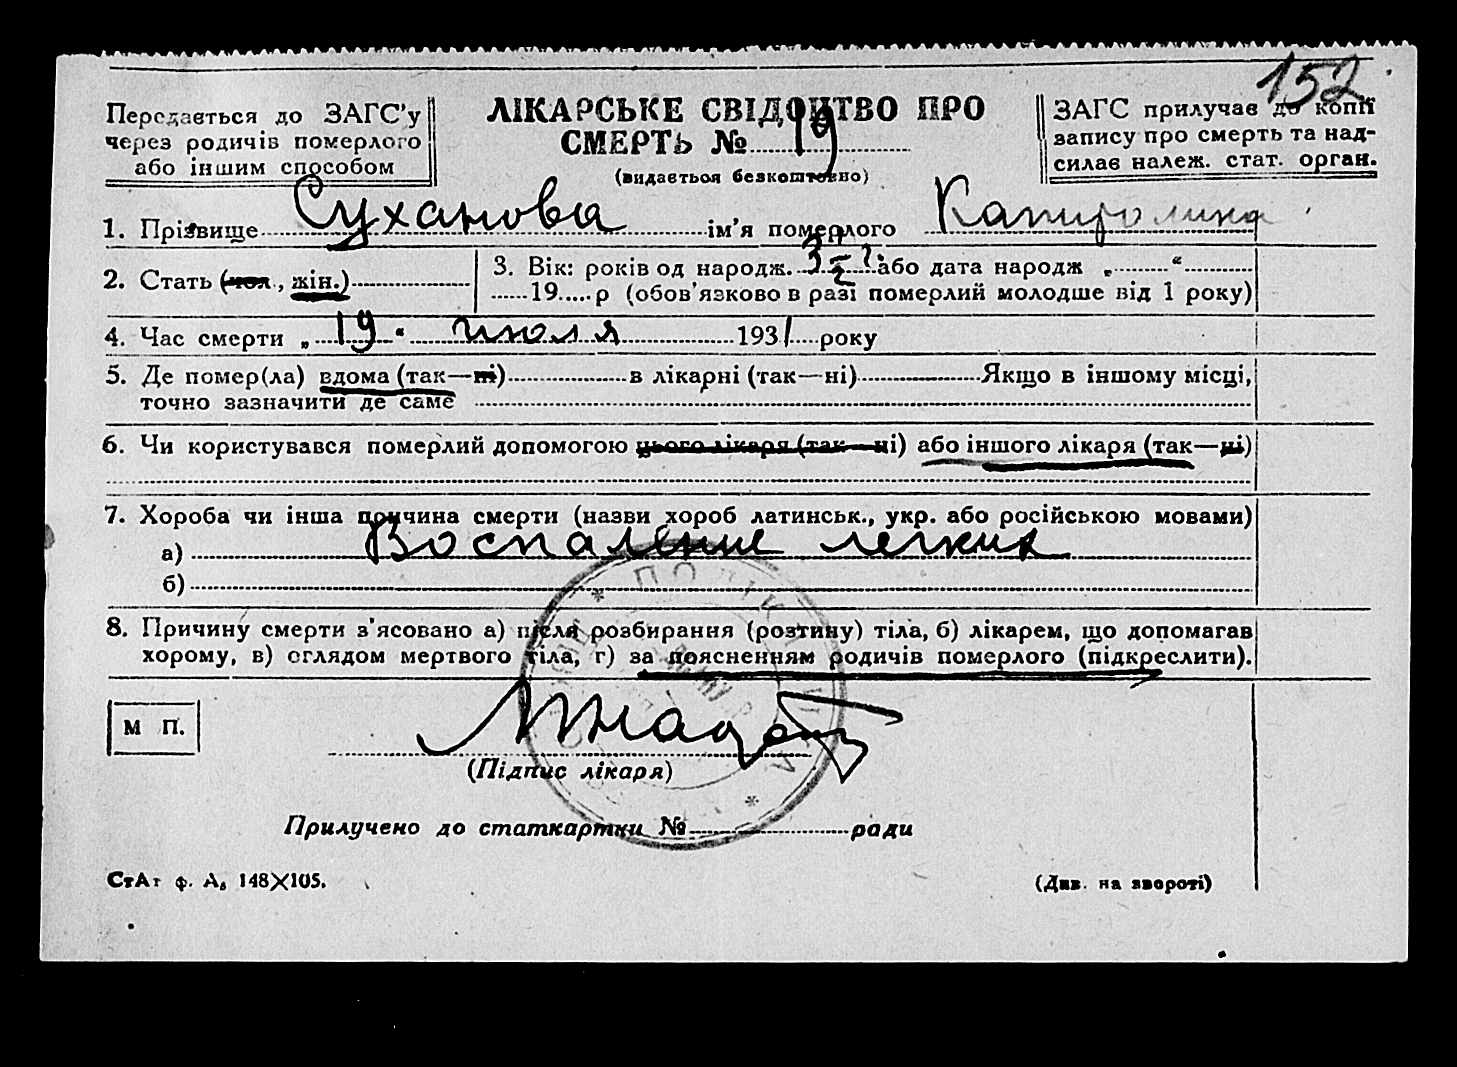 152
Передається до ЗАГС'у
через родичів померлого
або іншим способом
ЛІКАРСЬКЕ СВІДОЦТВО ПРО
СМЕРТЬ № 19
(видається безкоштовно)
ЗАГС прилучає до копії
запису про смерть та над-
силає належ. стат. орган.
1. Прізвище Суханова ім'я померлого Капитолина
2. Стать (чол., жін.)
3. Вік: років од народж. або дата народж „ “
19 р (обов'язково в разі померлий молодше від 1 року)
4. Час смерти „ 19 “ июля 1931 року
5. Де помер(ла) вдома (так—ні) в лікарні (так—ні) Якщо в іншому місці,
точно зазначити де саме
6. Чи користувався померлий допомогою цього лікаря (так—ні) або іншого лікаря (так—ні)
7. Хороба чи інша причина смерти (назви хороб латинськ., укр. або російською мовами)
а) Воспаление легких
б)
8. Причину смерти з'ясовано а) після розбирання (розтину) тіла, б) лікарем, що допомагав
хорому, в) оглядом мертвого тіла, г) за поясненням родичів померлого (підкреслити).
М П.
(Підпис лікаря)
Прилучено до статкартки № ради
СтАт ф. А₅ 148×105.
(Див. на звороті)